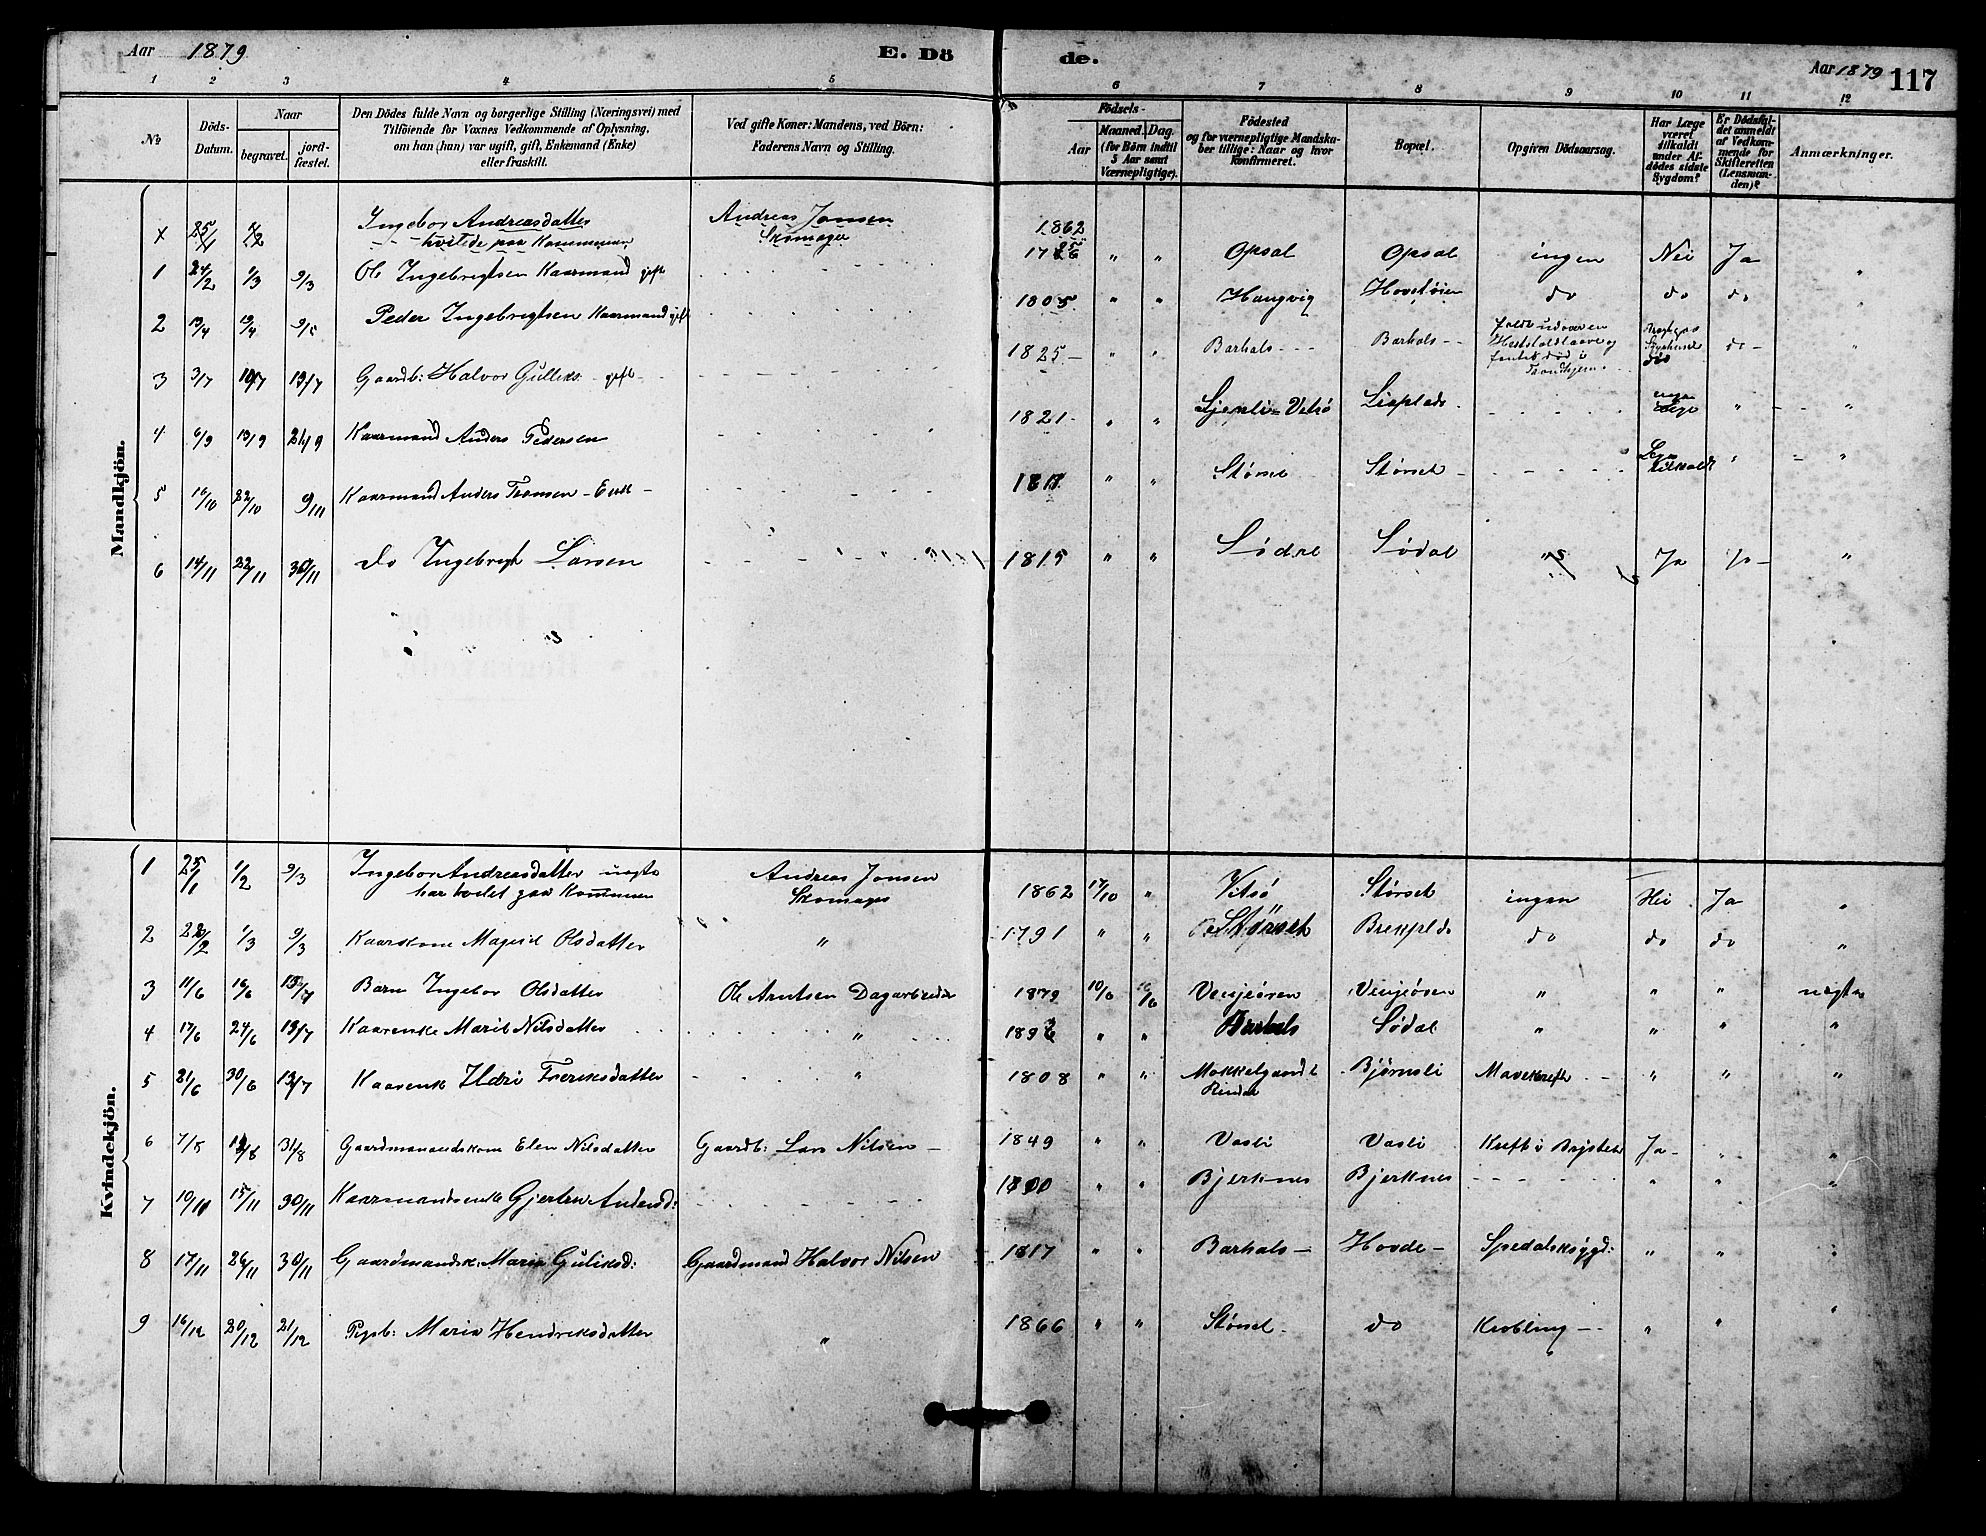 Aar 1879 E. Dö de. Aar 1879 117
1 2 3 4 5 6 7 8 9 10 11 12
No
Döds-Datum.
Naar
begravet.
jordfæstet.
Den Dödes fulde Navn og borgerlige Stilling (Næringsvei) med
Tilföiende for Voxnes Vedkommende af Oplysning,
om han (hun) var ugift, gift, Enkemand (Enke)
eller fraskilt.
Ved gifte Koner: Mandens, ved Börn:
Faderens Navn og Stilling.
Födsels-
Aar
Maaned. Dag.
(for Börn indtil
5 Aar samt
Værnepligtige).
Födested
og for værnepligtige Mandska-
ber tillige: Naar og hvor
konfirmeret.
Bopæl.
Opgiven Dödsaarsag.
Har Læge
været
tilkaldt
under Af-
dödes sidste
Sygdom?
Er Dödsfal-
det anmeldt
af Vedkom-
mende for
Skifteretten
(Lensman-
den)?
Anmærkninger.
Mandkjön.
X 25/1 1/2 Ingebor Andreasdatter Andreas Jonsen 1862
Skomager
1 24/2 1/3 9/3 Ole Ingebrigtsen Kaarmand gift " " Opsal Opsal ingen Nei Ja "
2 13/4 19/4 Peder Ingebrigtsen Kaarmand gift 1805 " " Haugvig do do do "
3 3/7 10/7 13/7 Gaardb: Halvor Gulliks gift 1825 " " Barhals Barhals do "
4 6/9 13/9 21/9 Kaarmand Anders Pedersen 1821 " " Liaplads " "
5 16/10 22/10 9/11 Kaarmand Anders Tronsen - Enk - " " Størset Størset " "
6 14/11 22/11 30/11 do Ingebrigt Larsen 1815 " " Sødal Sødal Ja Ja "
Kvindekjön.
1 25/1 1/2 9/3 Ingebor Andreasdatter Andreas Jonsen 1862 17/10 " Vitsø Størset ingen Nei Ja "
Skomager
2 1/3 9/3 Kaarkone Magnil Olsdatter " 1791 " " Størset Brekplds do do do "
3 11/6 16/6 13/7 Barn Ingebor Olsdatter Ole Arntsen Dagarbeider 1879 10/6 Venjeøren Venjeøren " " "
4 17/6 24/6 13/7 Kaarenke Marit Nilsdatter " " " Barhals Sødal " " " "
5 21/6 30/6 13/7 Kaarenk Ildri Freriksdatter " 1808 " " Mokkelgaard Bjørnsli Mavekreft " " "
Rindal
6 31/8 Gaardmandskone Elen Nilsdatter Gaardb: Lars Nilsen 1849 " " Vasli Vasli Kreft i Brystet Ja " "
7 10/11 15/11 30/11 Kaarmandsenk Gjertru Andersd: 1800 " " Bjerknes Bjerknes " " "
8 17/11 26/11 30/11 Gaardmandsk: Marit Guliksd: Gaardmand Halvor Nilsen 1817 " " Barhals Hovde Spedalsksygd: " " "
9 16/12 20/12 21/12 Pigeb: Marit Hendriksdatter " 1866 " " Størset do Krobling " " "